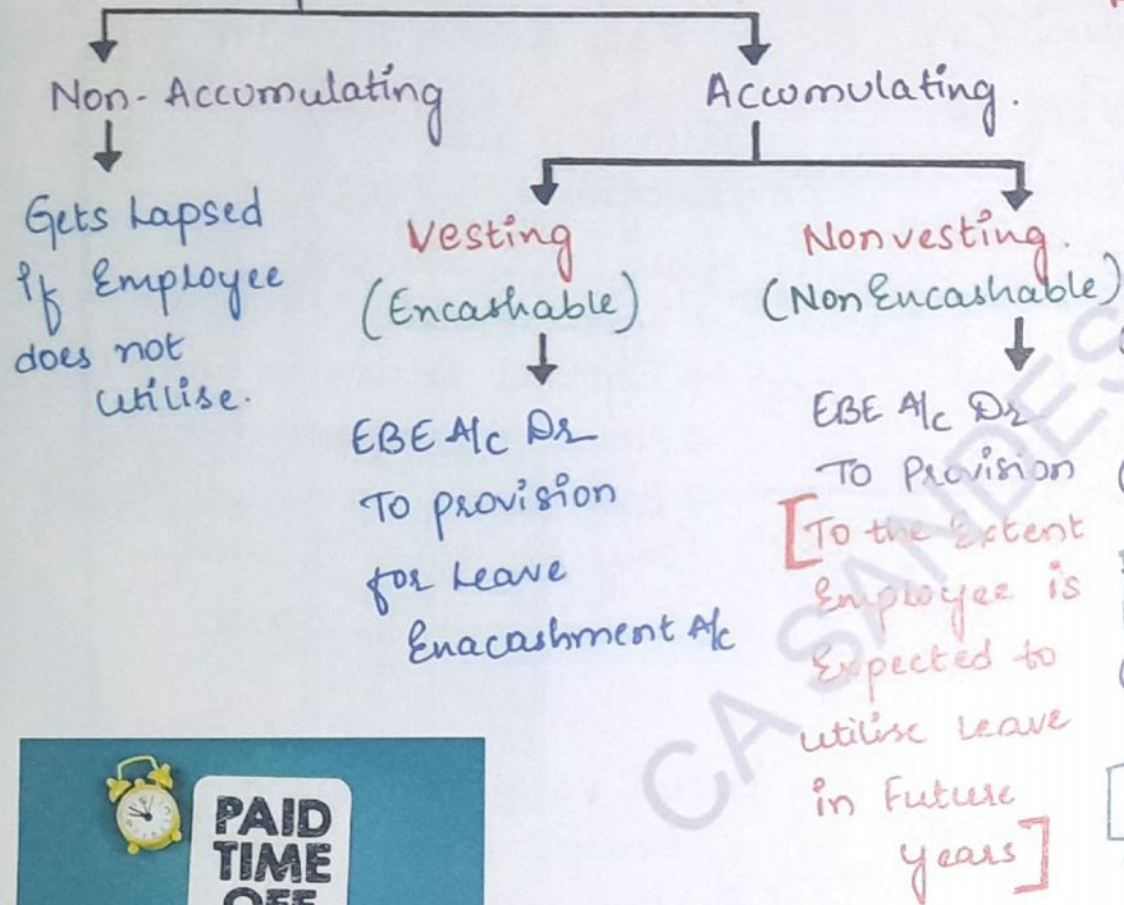 Non-Accumulating
Accumulating.
Gets Lapsed
if Employee
does not
utilise.
Vesting
(Encashable)
EBE A/c Dr
To provision
for Leave
Enacashment A/c
Nonvesting.
(Non Encashable)
EBE A/c Dr
To Provision
[To the Extent
Employee is
Expected to
utilise Leave
in Future
years]
CA SANDES
PAID
TIME
OFF